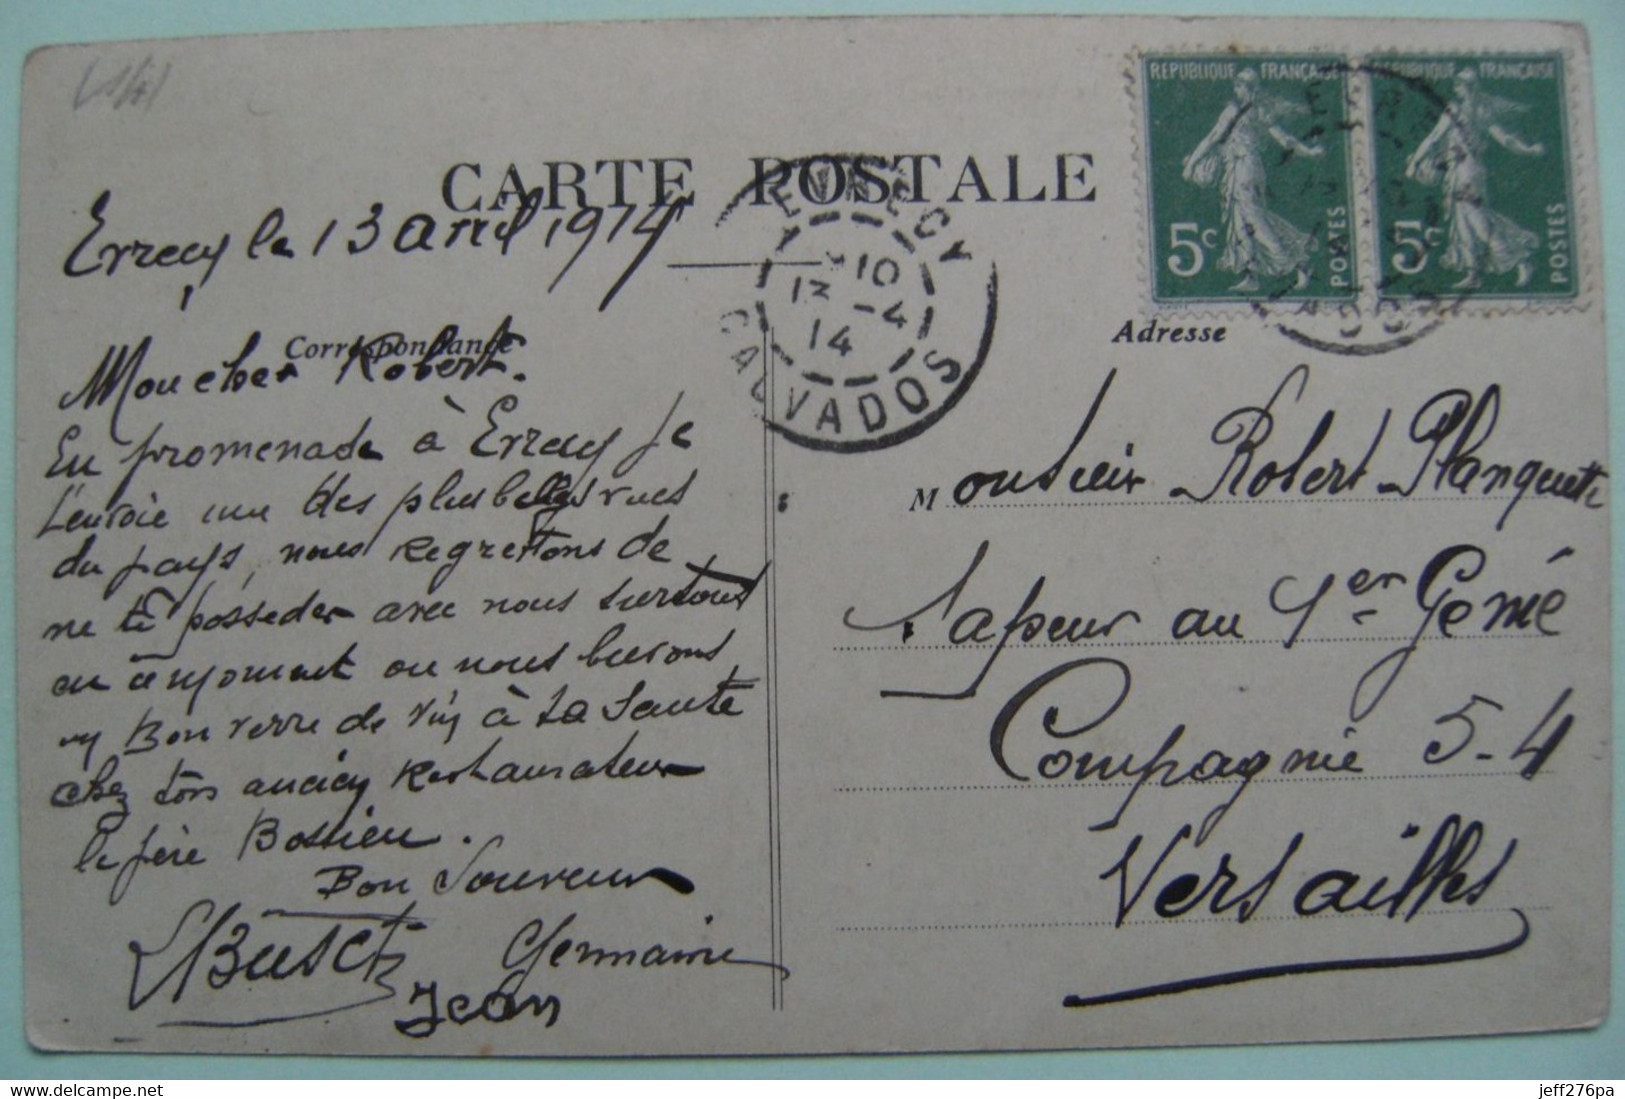 CARTE POSTALE
Evrecy le 13 avril 1914
Correspondance
Mon cher Robert.
En promenade à Evrecy je
t'envoie une des plus belles vues
du pays, nous regrettons de
ne te posseder avec nous surtout
au moment ou nous buvons
un Bon verre de vin à ta Santé
chez ton ancien Restaurateur
le père Bossieu.
Bon Souvenir
Germaine
Jean
EVRECY
10
13 -4
14
CALVADOS
REPUBLIQUE FRANÇAISE
5c
POSTES
REPUBLIQUE FRANÇAISE
5c
POSTES
Adresse
Monsieur Robert Planquette
Sapeur au 1er Genie
Compagnie 5-4
Versailles
www.delcampe.net
jeff276pa